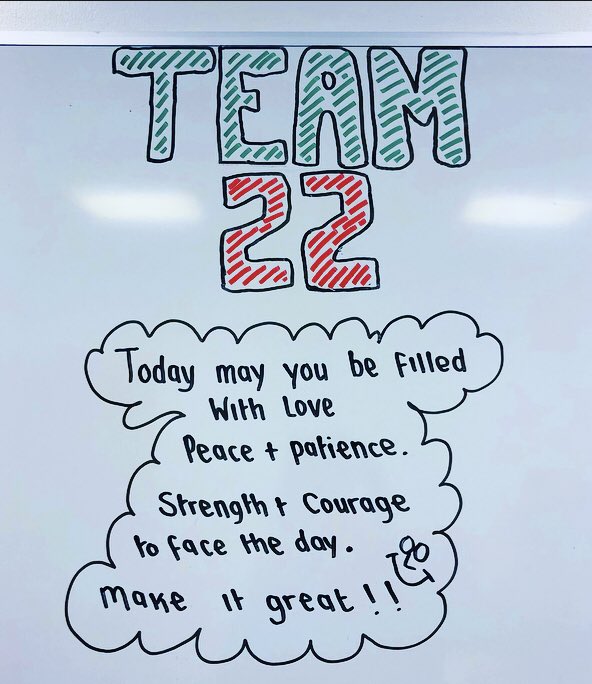 TEAM
22
Today may you be filled
With Love
Peace + patience.
Strength + Courage
to face the day.
make it great!!